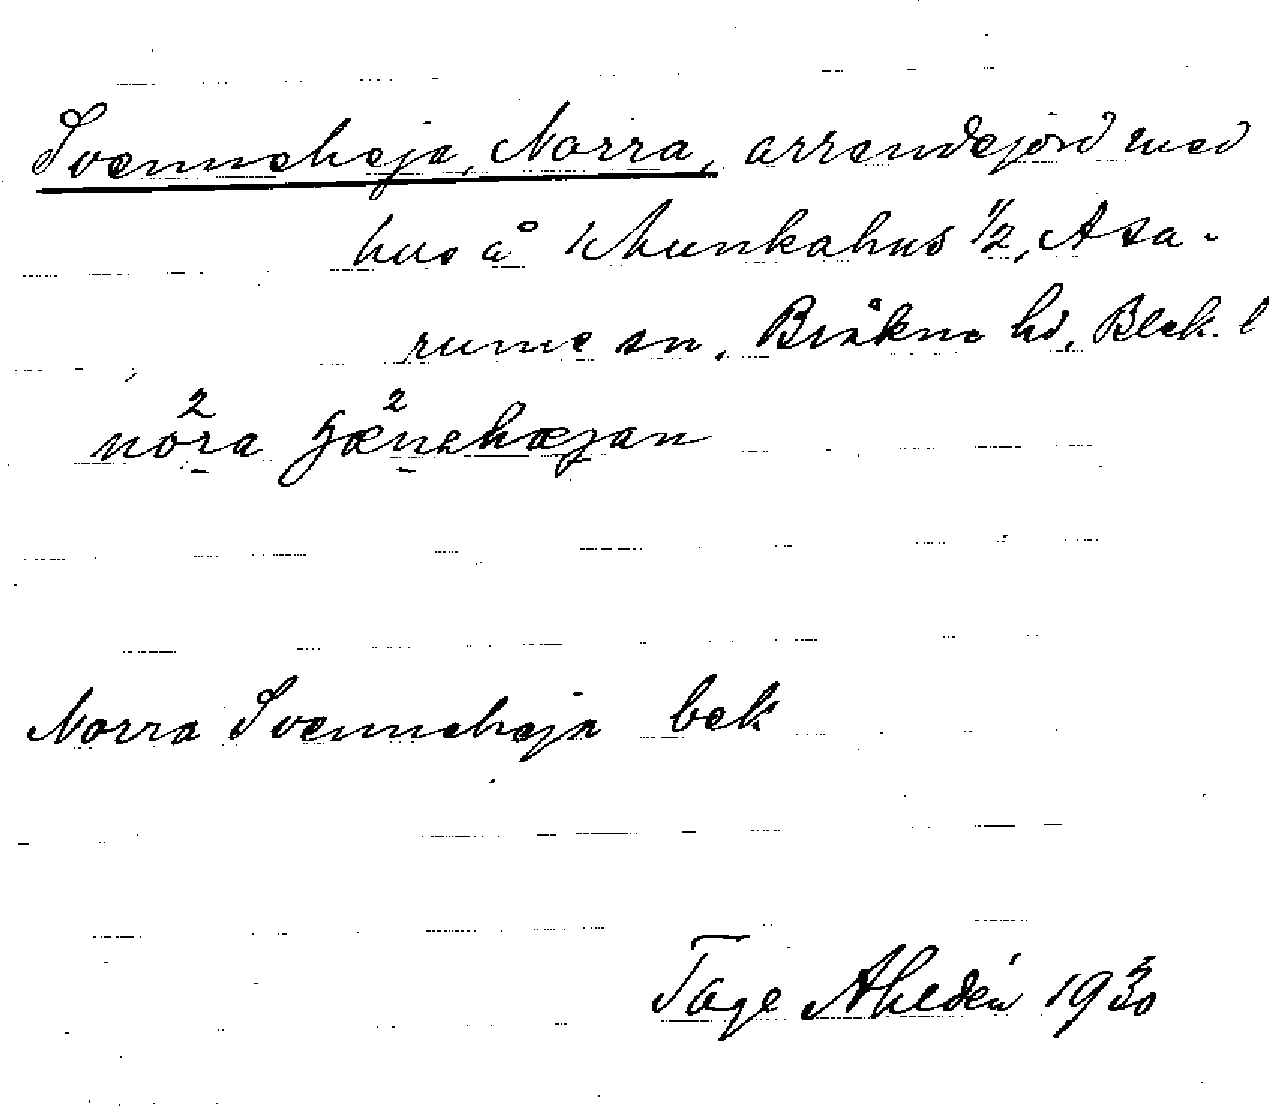 Svennehaja, Norra, arrendejord med
hus å Munkahus 1/2, Asa-
rums sn, Bräkne hd, Blek. l
Norra Svennehaja bek
Tage Ahldén 1930